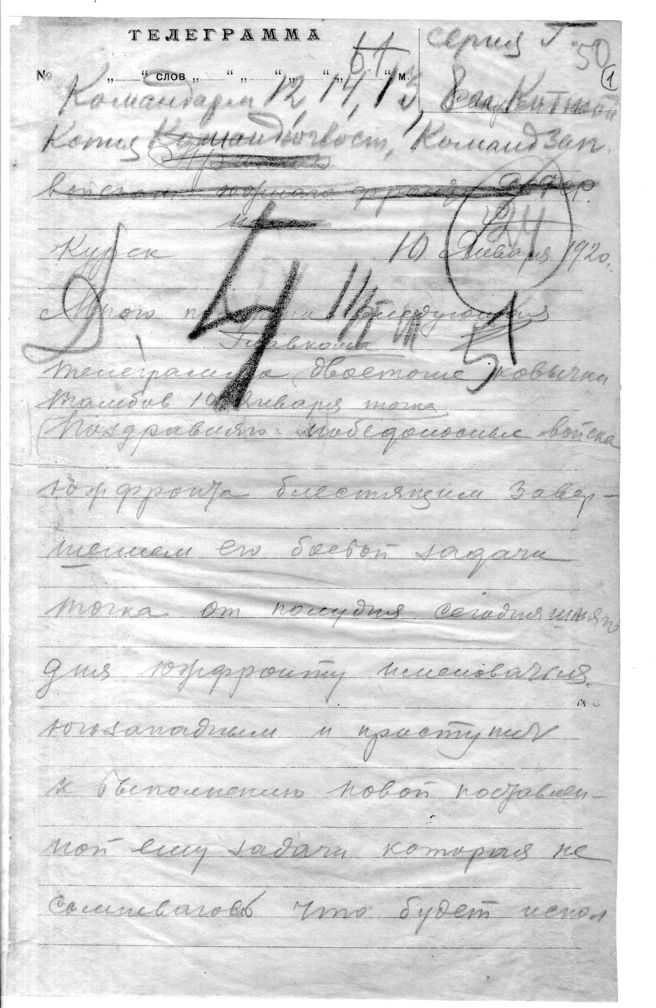 ТЕЛЕГРАММА
серия Г.
50
№ „ “ слов „ “ „ “ „ “ „ “ м.
1
Командарм 12, 14, 13,
Копия Командзап.
войскам южного фронта
Курск 10 Января 1920.
24
телеграмма Главкома двоеточие кавычки
Тамбов 10 Января точка
Поздравляю победоносные войска
южфронта блестящим завер-
шением его боевой задачи
точка от полудня сегодняшняго
дня южфронту именоваться
югозападным и приступить
к выполнению новой поставлен-
ной ему задачи которая не
сомневаюсь что будет испол